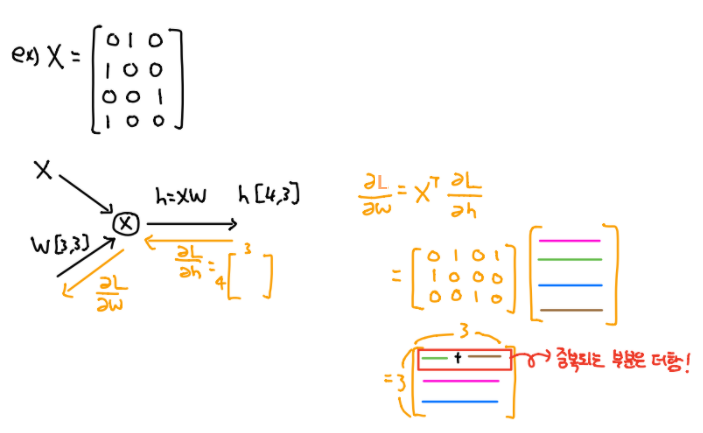 ex) X = [0 1 0
1 0 0
0 0 1
1 0 0]
X
h=XW
h [4,3]
X
W[3,3]
∂L/∂h = 4[ ] 3
∂L/∂W
∂L/∂W = Xᵀ ∂L/∂h
= [0 1 0 1
1 0 0 0
0 0 1 0] [ ]
3
= 3 [ + ]
중복되는 부분은 더함!